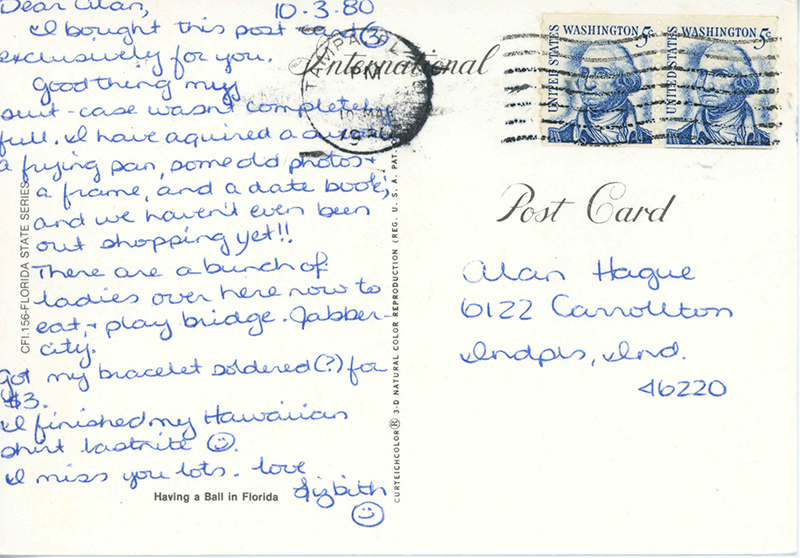 Dear Alan,
10.3.80
I bought this post card (3)
exclusively for you.
Good thing my
suit-case wasn't completely
full. I have aquired a
a frying pan, some old photos +
a frame, and a date book,
and we haven't even been
out shopping yet!!
There are a bunch of
ladies over here now to
eat, + play bridge. Jabber-
city.
Got my bracelet soldered(?) for
$3.
I finished my Hawaiian
shirt lastnite ☺.
I miss you lots. love
Lizbith
☺
CFI.156-FLORIDA STATE SERIES
Having a Ball in Florida
CURTEICHCOLOR® 3-D NATURAL COLOR REPRODUCTION (REG. U. S. A. PAT.
International
TAMPA, FL
PM
10 MAR
1980
UNITED STATES WASHINGTON 5¢
UNITED STATES WASHINGTON 5¢
Post Card
Alan Hague
6122 Carrollton
Indpls, Ind.
46220